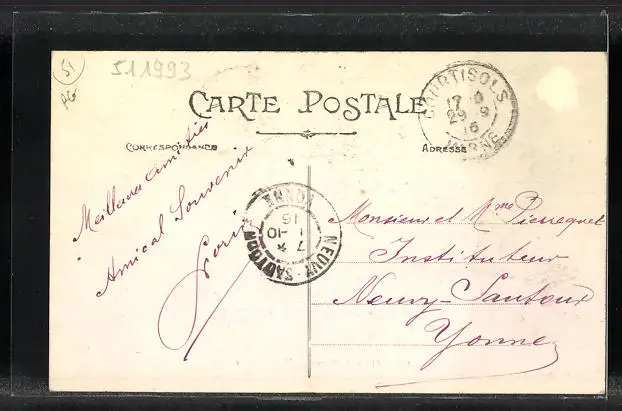 51
AG
511993
CARTE POSTALE
CORRESPONDANCE
ADRESSE
COURTISOLS
17
29 9
16
MARNE
Meilleures amitiés
Amical Souvenir
YONNE
16
1 -10
7 *
NEUVY-SAUTOUR
Monsieur et Mme Pierrequet
Instituteur
Neuvy-Sautour
Yonne